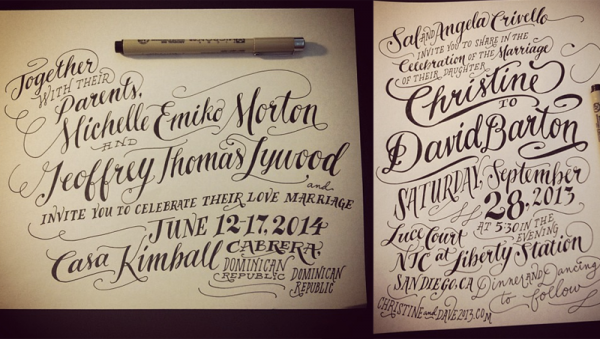 Together
WITH THEIR
Parents,
Michelle Emiko Morton
AND
Jeoffrey Thomas Lywood
and
INVITE YOU TO CELEBRATE THEIR LOVE MARRIAGE
JUNE 12-17, 2014
Casa Kimball CABRERA,
DOMINICAN
REPUBLIC
DOMINICAN
REPUBLIC
Sal AND Angela Crivello
INVITE YOU TO SHARE IN THE
Celebration OF THE Marriage
OF THEIR DAUGHTER
Christine
TO
David Barton
SATURDAY, September
28, 2013
Luce Court AT 5:30 IN THE
EVENING
NTC at Liberty Station
SAN DIEGO, CA Dinner AND Dancing
to follow
CHRISTINE and DAVE2013.COM